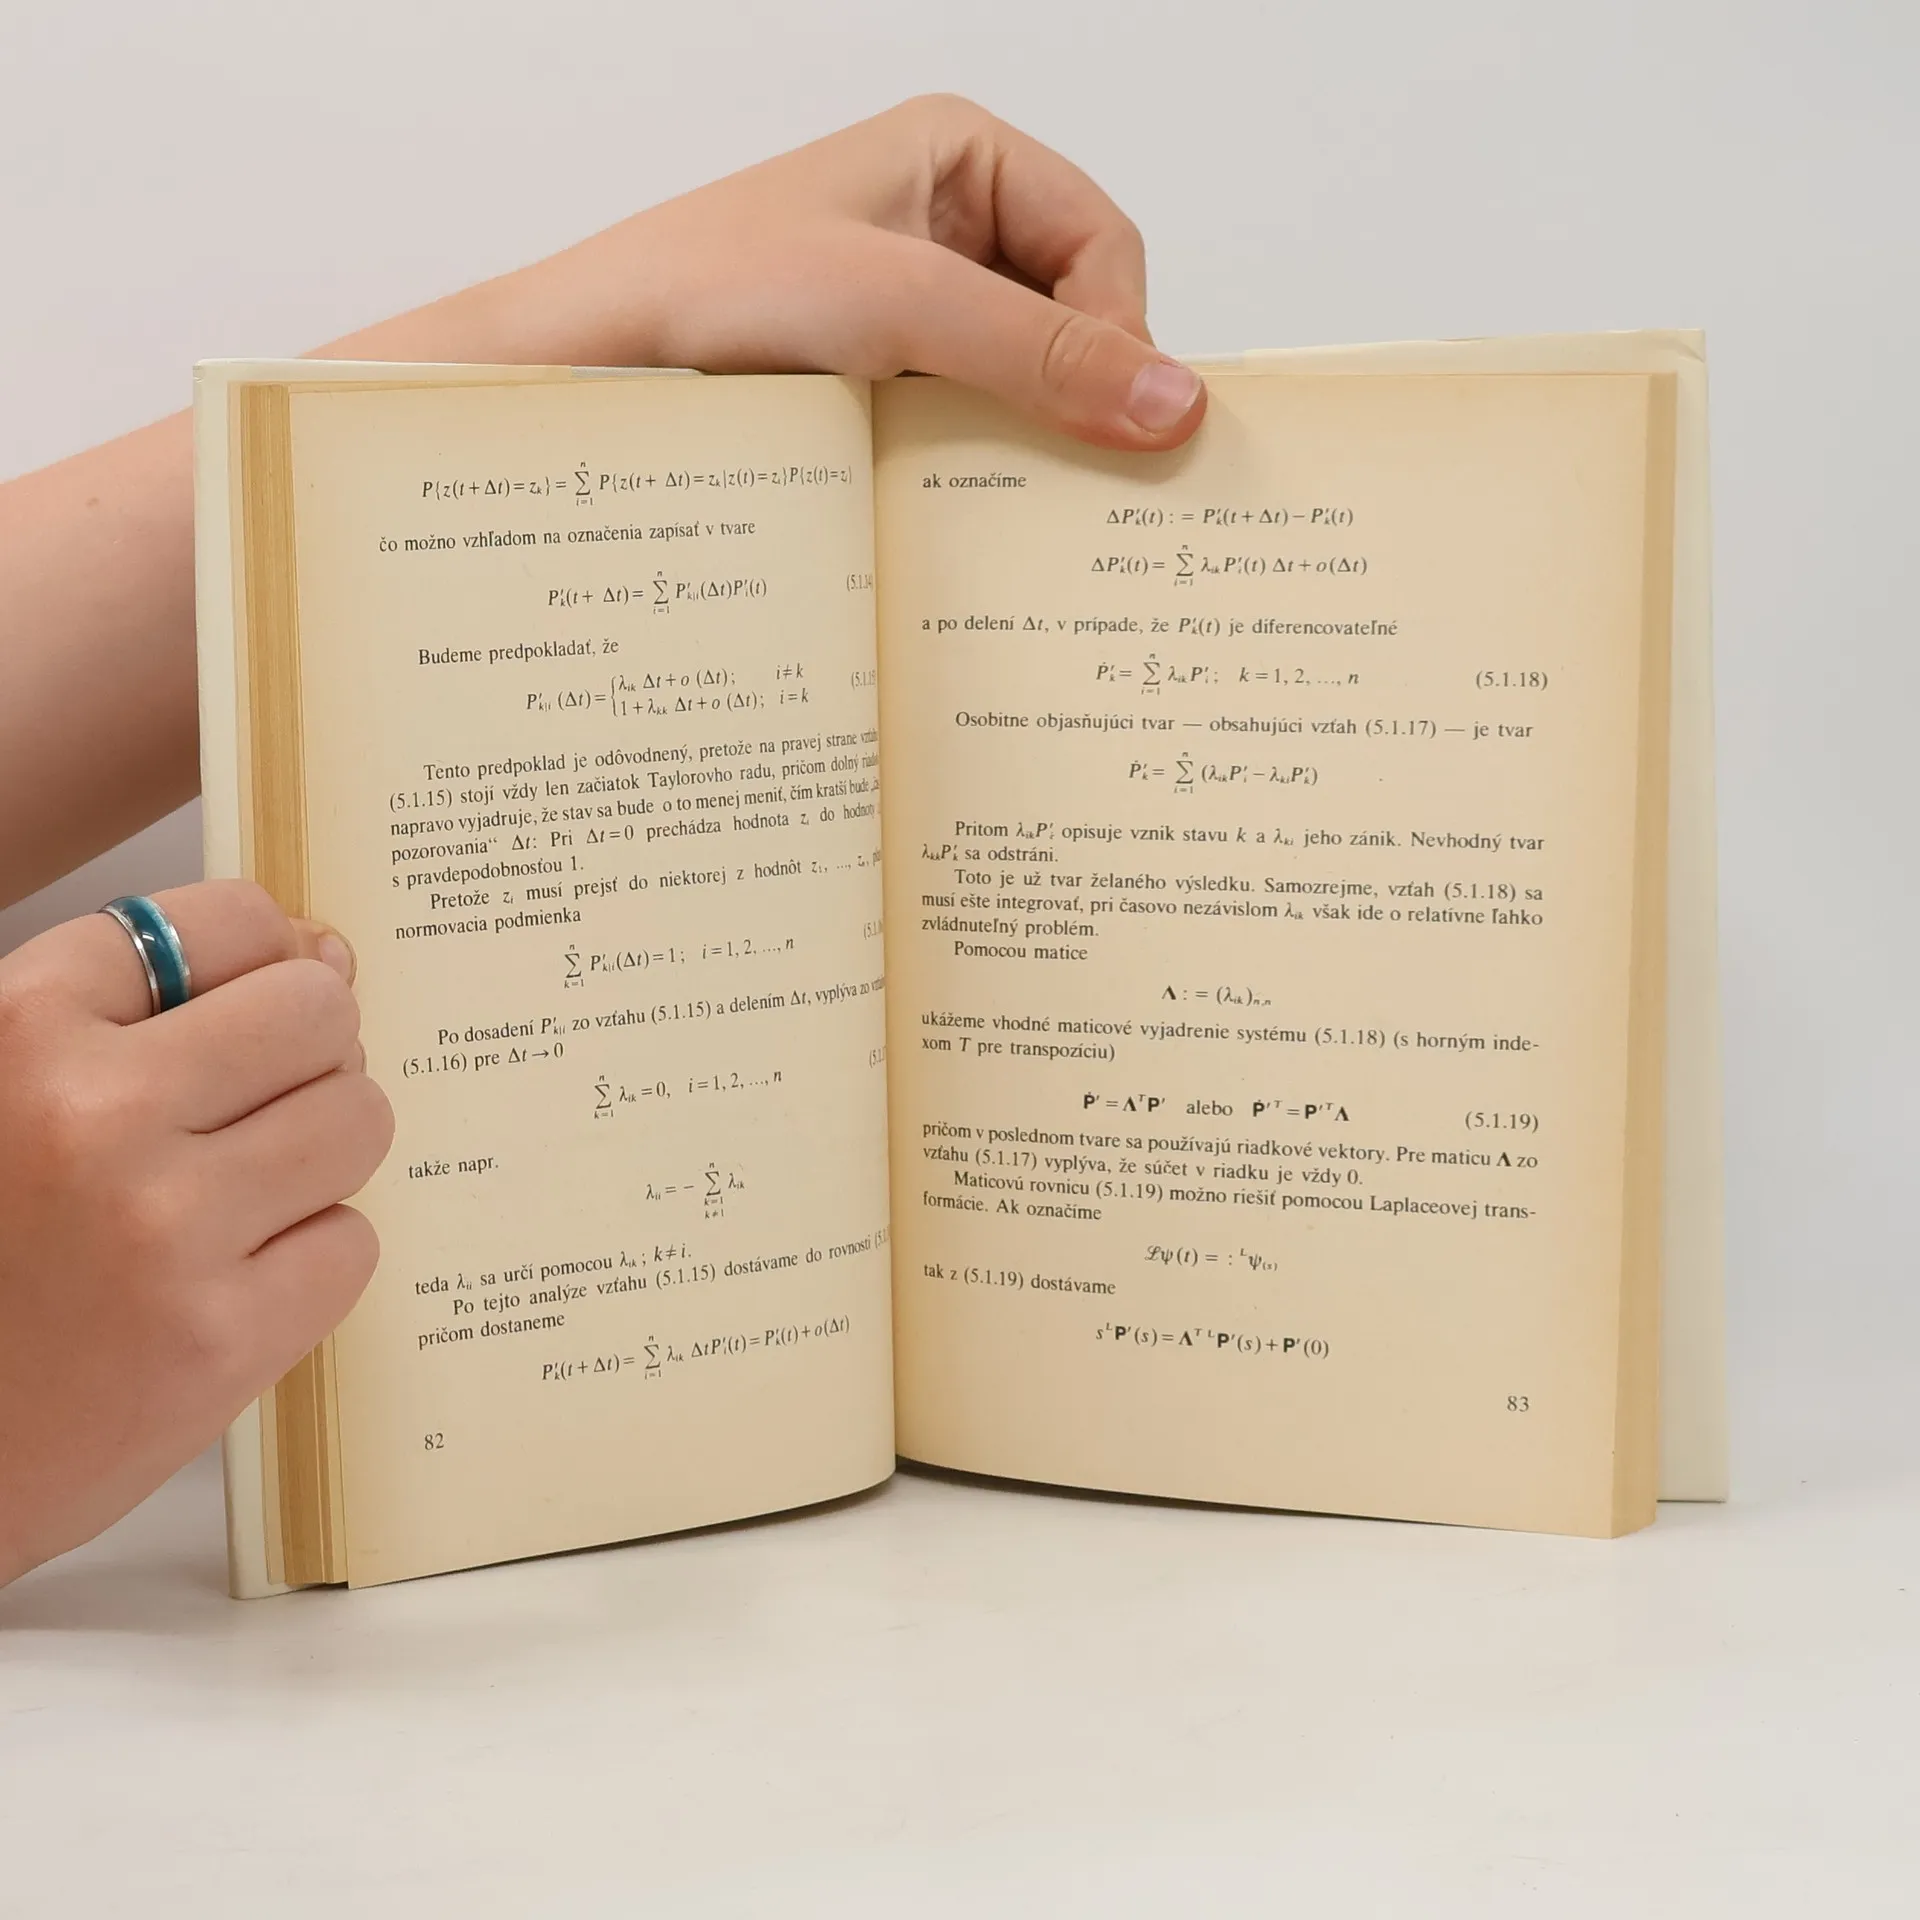 P{z(t+Δt)=zₖ}= ∑ⁿᵢ₌₁ P{z(t+ Δt)=zₖ|z(t)=zᵢ}P{z(t)=zᵢ}
čo možno vzhľadom na označenia zapísať v tvare
P′ₖ(t+ Δt)= ∑ⁿᵢ₌₁ P′ₖ|ᵢ(Δt)P′ᵢ(t) (5.1.14)
Budeme predpokladať, že
P′ₖ|ᵢ (Δt)= {λᵢₖ Δt+o (Δt); i≠k
1+λₖₖ Δt+o (Δt); i=k (5.1.15)
Tento predpoklad je odôvodnený, pretože na pravej strane
(5.1.15) stojí vždy len začiatok Taylorovho radu, pričom dolný
napravo vyjadruje, že stav sa bude o to menej meniť, čím kratší bude
pozorovania“ Δt: Pri Δt=0 prechádza hodnota zᵢ do hodnoty
s pravdepodobnosťou 1.
Pretože zᵢ musí prejsť do niektorej z hodnôt z₁, ..., zₙ,
normovacia podmienka
∑ⁿₖ₌₁ P′ₖ|ᵢ(Δt)=1; i=1, 2, ..., n
Po dosadení P′ₖ|ᵢ zo vzťahu (5.1.15) a delením Δt, vyplýva zo
(5.1.16) pre Δt→0
∑ⁿₖ₌₁ λᵢₖ=0, i=1, 2, ..., n
takže napr.
λᵢᵢ= − ∑ⁿₖ₌₁ λᵢₖ
k≠1
teda λᵢᵢ sa určí pomocou λᵢₖ; k≠i.
Po tejto analýze vzťahu (5.1.15) dostávame do rovnosti
pričom dostaneme
P′ₖ(t+Δt)= ∑ⁿᵢ₌₁ λᵢₖ ΔtP′ᵢ(t)=P′ₖ(t)+o(Δt)
82
ak označíme
ΔP′ₖ(t) : = P′ₖ(t+Δt)−P′ₖ(t)
ΔP′ₖ(t)= ∑ⁿᵢ₌₁ λᵢₖP′ᵢ(t) Δt+o(Δt)
a po delení Δt, v prípade, že P′ₖ(t) je diferencovateľné
Ṗ′ₖ= ∑ⁿᵢ₌₁ λᵢₖP′ᵢ; k=1, 2, ..., n (5.1.18)
Osobitne objasňujúci tvar — obsahujúci vzťah (5.1.17) — je tvar
Ṗ′ₖ= ∑ⁿᵢ₌₁ (λᵢₖP′ᵢ−λₖᵢP′ₖ)
Pritom λᵢₖP′ᵢ opisuje vznik stavu k a λₖᵢ jeho zánik. Nevhodný tvar
λₖₖP′ₖ sa odstráni.
Toto je už tvar želaného výsledku. Samozrejme, vzťah (5.1.18) sa
musí ešte integrovať, pri časovo nezávislom λᵢₖ však ide o relatívne ľahko
zvládnuteľný problém.
Pomocou matice
Λ : = (λᵢₖ)ₙ,ₙ
ukážeme vhodné maticové vyjadrenie systému (5.1.18) (s horným inde-
xom T pre transpozíciu)
Ṗ′=ΛᵀP′ alebo Ṗ′ᵀ=P′ᵀΛ (5.1.19)
pričom v poslednom tvare sa používajú riadkové vektory. Pre maticu Λ zo
vzťahu (5.1.17) vyplýva, že súčet v riadku je vždy 0.
Maticovú rovnicu (5.1.19) možno riešiť pomocou Laplaceovej trans-
formácie. Ak označíme
ℒψ(t) = : ᴸψ₍ₛ₎
tak z (5.1.19) dostávame
sᴸP′(s)=Λᵀ ᴸP′(s)+P′(0)
83